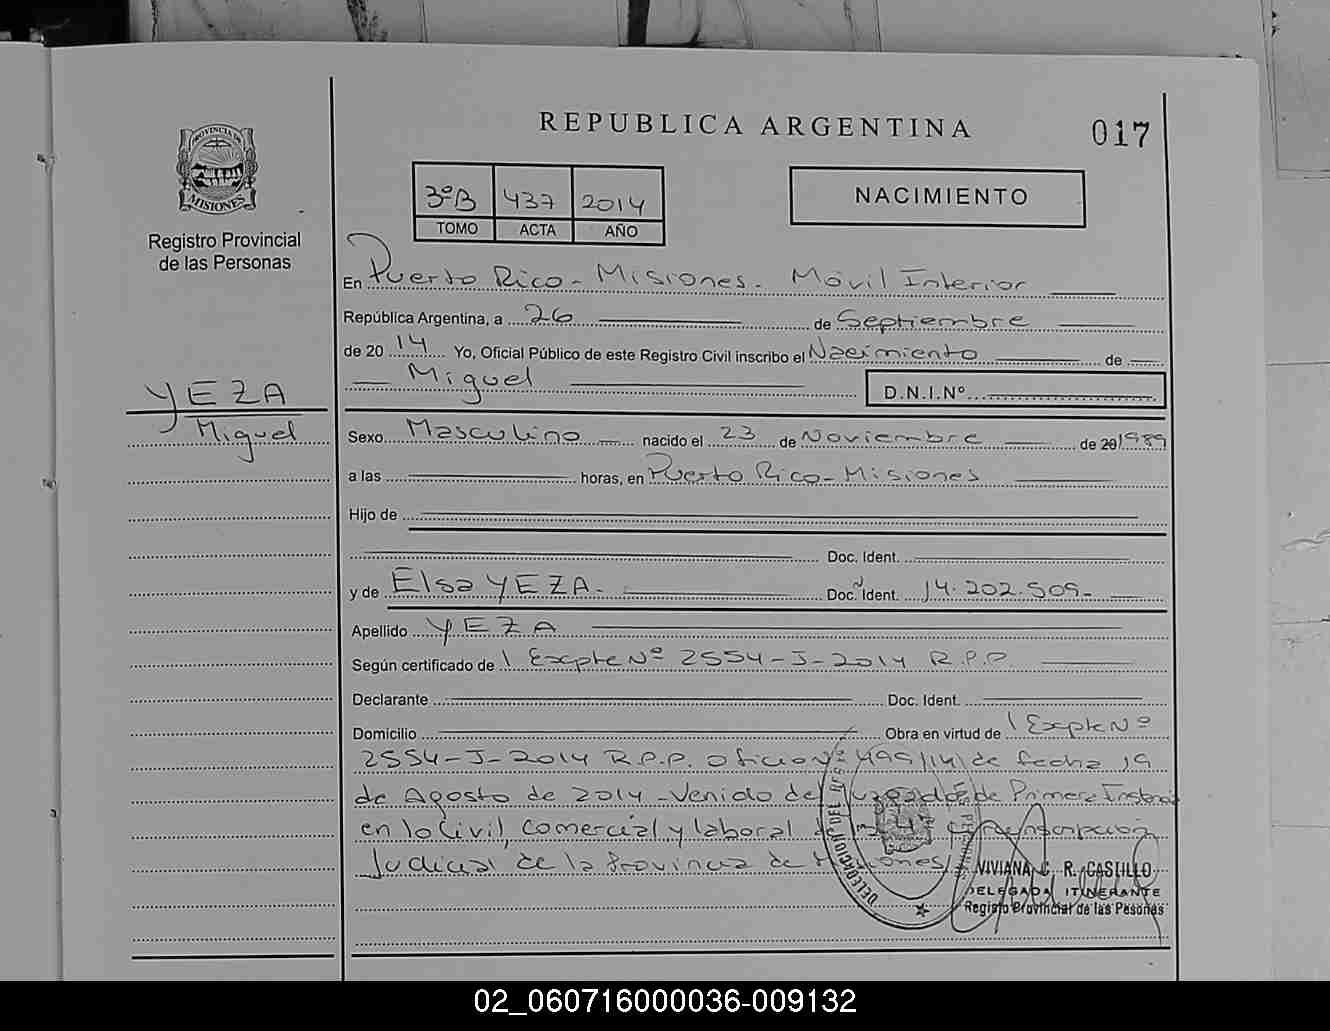 REPUBLICA ARGENTINA
017
PROVINCIA DE
MISIONES
Registro Provincial
de las Personas
3ºB 437 2014
TOMO ACTA AÑO
NACIMIENTO
En Puerto Rico - Misiones. Móvil Interior
República Argentina, a 26 de Septiembre
de 20 14 Yo, Oficial Público de este Registro Civil inscribo el Nacimiento de
Miguel
D.N.I.Nº
YEZA
Miguel
Sexo Masculino nacido el 23 de Noviembre de 20 1989
a las horas, en Puerto Rico - Misiones
Hijo de
Doc. Ident.
y de Elsa YEZA. Doc. Ident. 14.202.509-
Apellido YEZA
Según certificado de 1 Expte Nº 2554-J-2014 R.P.P.
Declarante Doc. Ident.
Domicilio Obra en virtud de 1 Expte Nº
2554-J-2014 R.P.P. Oficio Nº 499/14 de fecha 19
de Agosto de 2014 - Venido del Juzgado de Primera
en lo Civil, Comercial y laboral Circunscripción
Judicial de la Provincia de Misiones
VIVIANA C. R. CASTILLO
DELEGADA ITINERANTE
Registo Provincial de las Pesonas
DELEGACION DEL
02_060716000036-009132